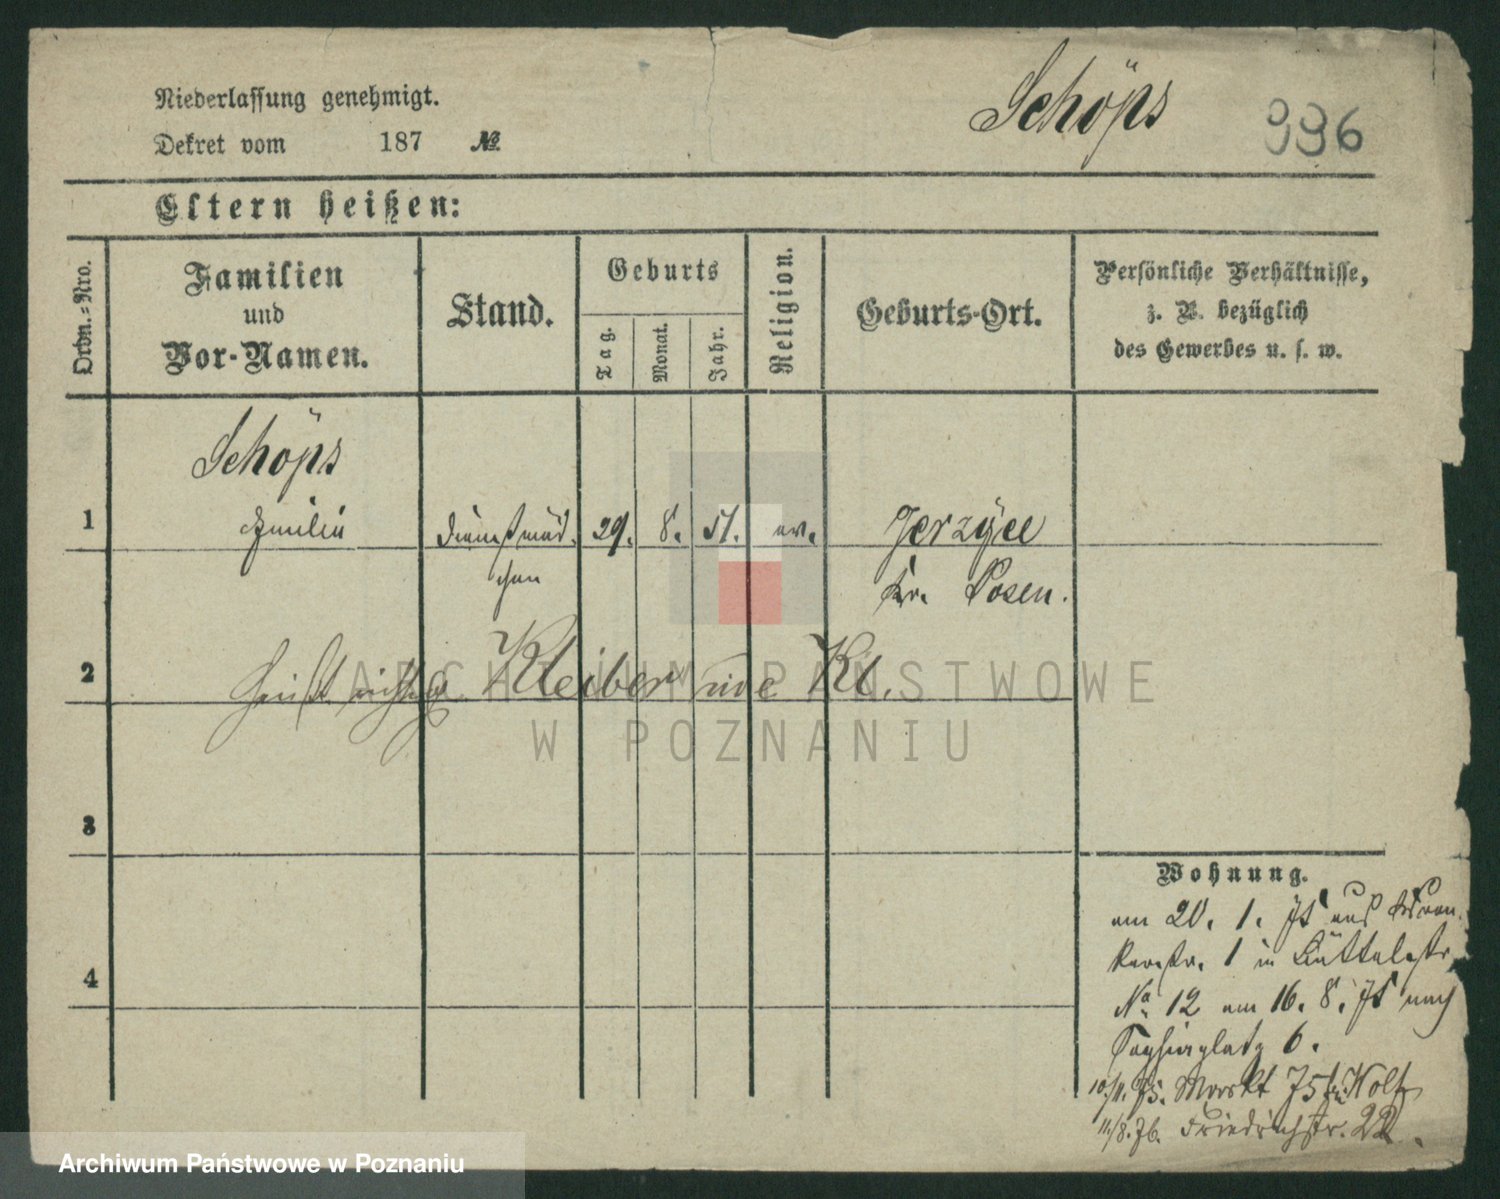 Schöps
996
Niederlassung genehmigt.
Dekret vom 187 №
Eltern heißen:
Ordn.-Nro.
Familien
und
Vor-Namen.
Stand.
Geburts
Tag.
Monat.
Jahr.
Religion.
Geburts-Ort.
Persönliche Verhältnisse,
z. B. bezüglich
des Gewerbes u. s. w.
Schöps
1 Emilie Dienstmäd- 29. 8. 51. ev. Jerzyce
chen Kr. Posen.
2 heißt richtig Kleiber siehe Kl.
3
4
Wohnung.
am 20. 1. 75 aus
1 in Büttelstr.
No 12 am 16. 8. 75 nach
Sapiehaplatz 6.
10/11. 75. Markt 75 Holtz
11/8. 76. Friedrichstr. 22.
ARCHIWUM PAŃSTWOWE
W POZNANIU
Archiwum Państwowe w Poznaniu